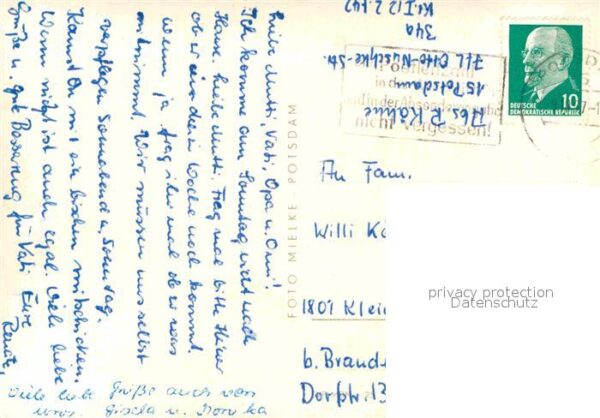 Liebe Mutti, Vati, Opa u. Omi!
Ich komme am Sonntag nicht nach
Hause. Liebe Mutti frag mal bitte Heiner
ob er in der Woche noch kommt.
wenn ja frag ihn mal ob er was
mitnimmt. Wir müssen uns selbst
verpflegen Sonnabend u. Sonntag.
Kannst Du mir ein bischen mitschicken.
Wenn nicht ist auch egal. Viele liebe
Grüße u. gute Besserung für Vati Eure
Renate,
Viele liebe Grüße auch von
uns. Gisela u. Monika
FOTO MIELKE POTSDAM
Abs. R.
15 Potsdam
711 Otto-Nuschke-Str.
34a
Postleitzahl
in der
nicht vergessen!
DEUTSCHE
DEMOKRATISCHE REPUBLIK
10
An Fam.
Willi
1801 Klein
b. Brand
Dorfstr. 13
privacy protection
Datenschutz